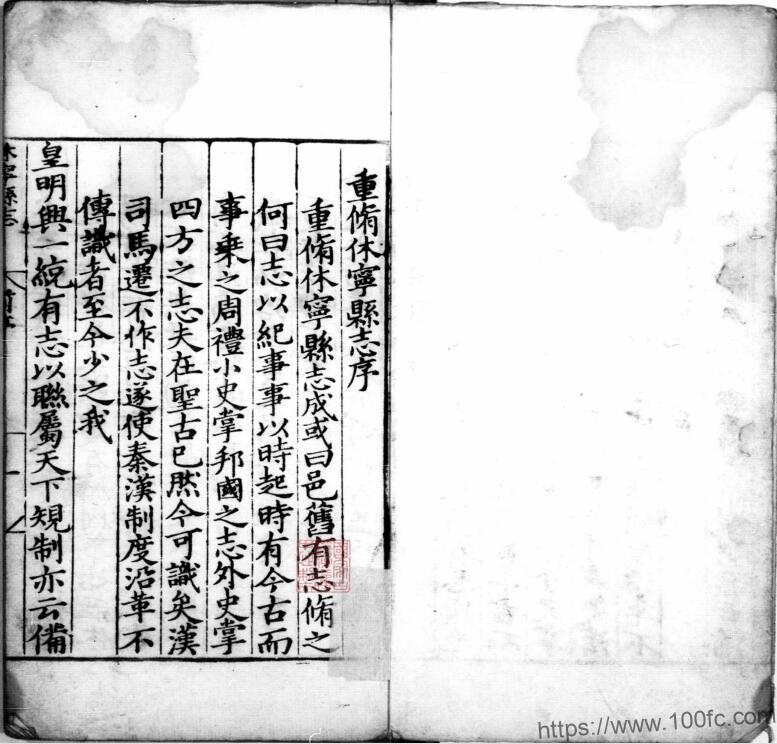 重脩休寧縣志序
重脩休寧縣志成或曰邑舊有志脩之
何曰志以紀事事以時起時有今古而
事乗之周禮小史掌邦國之志外史掌
四方之志夫在聖古已然今可識矣漢
司馬遷不作志遂使秦漢制度沿革不
傳識者至今少之我
皇明興一統有志以聮屬天下規制亦云備
休寧縣志
https://www.100fc.com